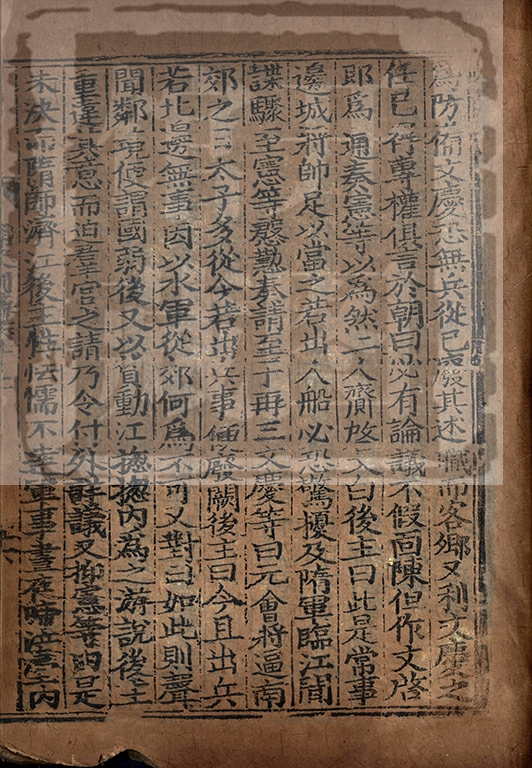 為防備文慶恐無兵從己廢其述職而客卿又利文慶之
任已得專權俱言於朝曰必有論議不假面陳但作文啓
即為通奏憲等以為然二人齎啓入白後主曰此是常事
邊城將帥足以當之若出人船必恐驚擾及隋軍臨江間
諜驟至憲等慇懃奏請至于再三文慶等曰元會將逼南
郊之日太子多從今若出兵事便廢闕後主曰今且出兵
若北邊無事因以水軍從郊何為不可又對曰如此則聲
聞鄰境便謂國弱後又以貨動江揔揔內為之遊說後主
重違其意而迫羣官之請乃令付外詳議又抑憲等由是
未決而隋師濟江後主性怯懦不達軍事晝夜啼泣臺內